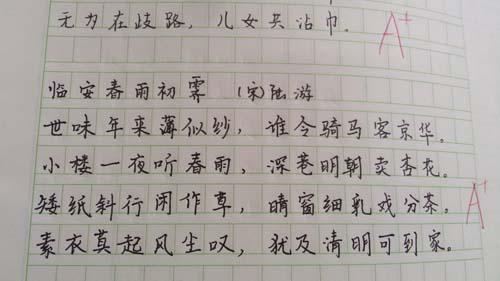 无力在歧路，儿女共沾巾。
A+
临安春雨初霁 (宋)陆游
世味年来薄似纱，谁令骑马客京华。
小楼一夜听春雨，深巷明朝卖杏花。
矮纸斜行闲作草，晴窗细乳戏分茶。
A+
素衣莫起风尘叹，犹及清明可到家。